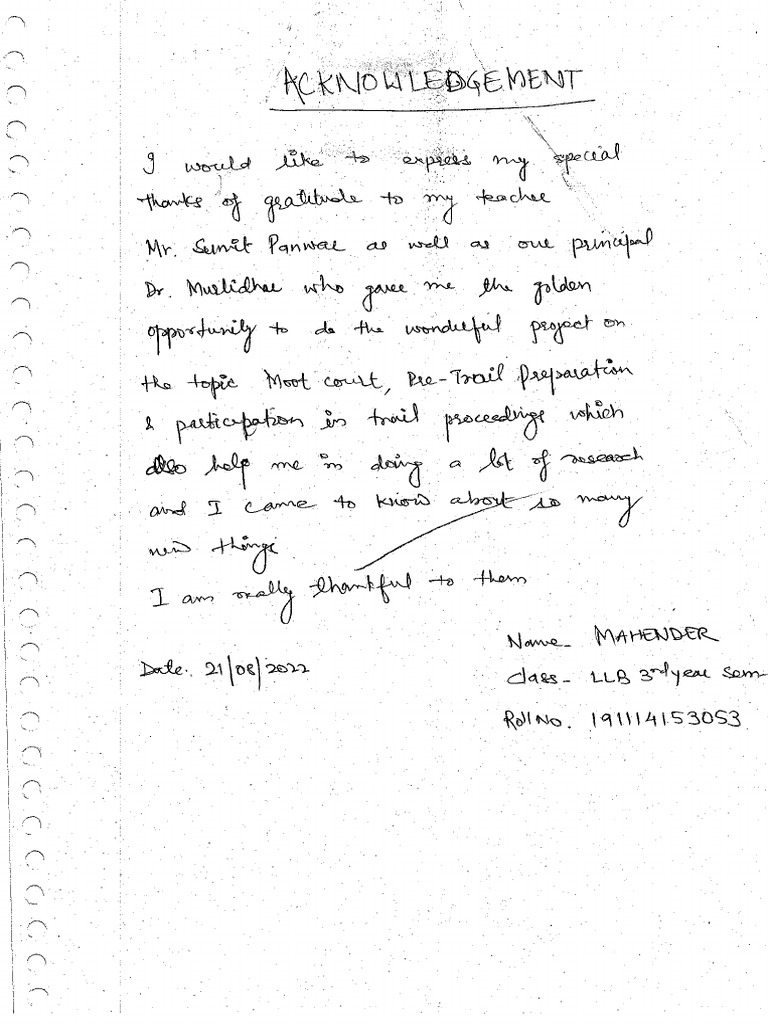 ACKNOWLEDGEMENT
I would like to express my special
thanks of gratitude to my teacher
Mr. Sumit Panwar as well as our principal
Dr. Murlidhar who gave me the golden
opportunity to do the wonderful project on
the topic Moot court, Pre-Trail Preparation
& participation in trail proceedings which
also help me in doing a lot of research
and I came to know about so many
new things
I am really thankful to them
Name- MAHENDER
Date. 21/08/2022
Class- LLB 3rd year Sem-
Roll No. 191114153053